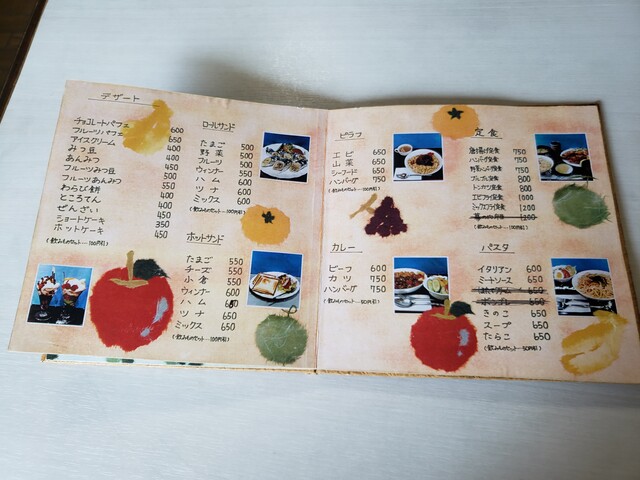 デザート
チョコレートパフェ
フルーツパフェ 600
アイスクリーム 450
みつ豆 400
あんみつ 400
フルーツみつ豆 450
フルーツあんみつ 500
わらび餅 550
ところてん 400
ぜんざい 450
ショートケーキ 350
ホットケーキ 450
(飲みものセット…100円引)
ロールサンド
たまご 500
野菜 500
フルーツ 500
ウィンナー 550
ハム 600
ツナ 600
ミックス 600
(飲みものセット…100円引)
ホットサンド
たまご 550
チーズ 550
小倉 550
ウィンナー 600
ハム 650
ツナ 650
ミックス 650
(飲みものセット…100円引)
ピラフ
エビ 650
山菜 650
シーフード 650
ハンバーグ 750
(飲みものセット…50円引)
カレー
ビーフ 600
カツ 750
ハンバーグ 750
(飲みものセット…50円引)
定食
唐揚げ定食 750
ハンバーグ定食 750
野菜ハンバーグ定食 750
800
トンカツ定食 800
エビフライ定食 1000
ミックスフライ定食 1200
1200
(飲みものセット…100円引)
パスタ
イタリアン 600
ミートソース 650
650
650
きのこ 650
スープ 650
たらこ 650
(飲みものセット…50円引)